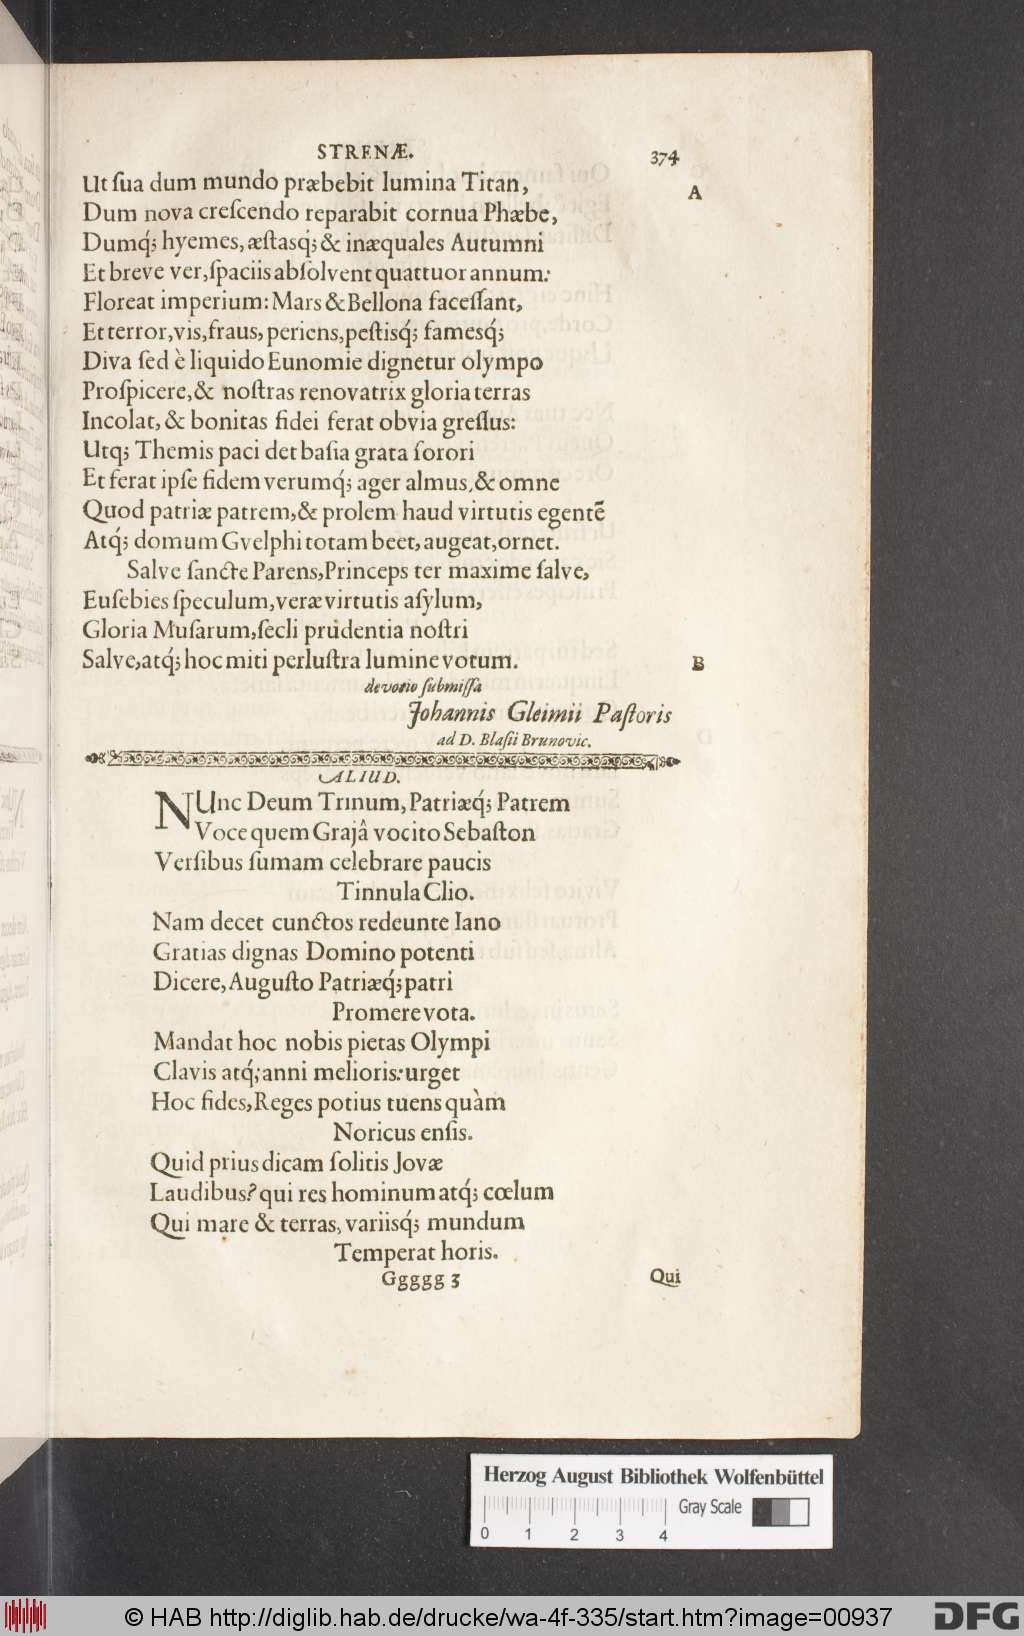 STRENÆ. 374
Ut ſua dum mundo præbebit lumina Titan,
A
Dum nova creſcendo reparabit cornua Phæbe,
Dumq́; hyemes, æſtasq́; & inæquales Autumni
Et breve ver, ſpaciis abſolvent quattuor annum:
Floreat imperium: Mars & Bellona faceſſant,
Et terror, vis, fraus, periens, peſtisq́; famesq́;
Diva ſed è liquido Eunomie dignetur olympo
Proſpicere, & noſtras renovatrix gloria terras
Incolat, & bonitas fidei ferat obvia greſſus:
Utq; Themis paci det baſia grata ſorori
Et ferat ipſe fidem verumq́; ager almus, & omne
Quod patriæ patrem, & prolem haud virtutis egentē
Atq́; domum Gvelphi totam beet, augeat, ornet.
Salve ſancte Parens, Princeps ter maxime ſalve,
Euſebies ſpeculum, veræ virtutis aſylum,
Gloria Muſarum, ſecli prudentia noſtri
Salve, atq́; hoc miti perluſtra lumine votum.
B
devotio ſubmiſſa
Johannis Gleimii Paſtoris
ad D. Blaſii Brunovic.
ALIUD.
NUnc Deum Trinum, Patriæq́; Patrem
Voce quem Grajâ vocito Sebaſton
Verſibus ſumam celebrare paucis
Tinnula Clio.
Nam decet cunctos redeunte Iano
Gratias dignas Domino potenti
Dicere, Auguſto Patriæq́; patri
Promere vota.
Mandat hoc nobis pietas Olympi
Clavis atq́; anni melioris: urget
Hoc fides, Reges potius tuens quàm
Noricus enſis.
Quid prius dicam ſolitis Jovæ
Laudibus? qui res hominum atq́; cœlum
Qui mare & terras, variisq́; mundum
Temperat horis.
Ggggg 3 Qui
Herzog August Bibliothek Wolfenbüttel
Gray Scale
0 1 2 3 4
© HAB http://diglib.hab.de/drucke/wa-4f-335/start.htm?image=00937
DFG